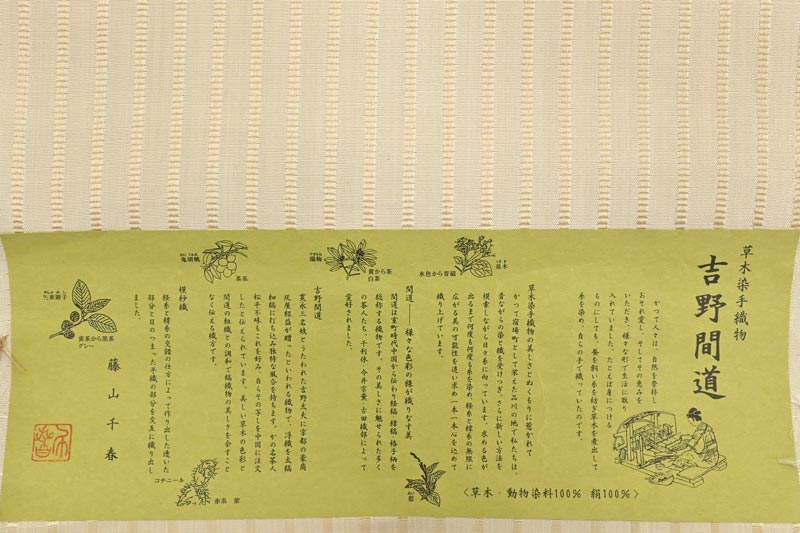 草木染手織物
吉野間道
かつて人々は、自然を崇拝し
おそれ愛し、そしてその恵みを
いただき、様々な形で生活に取り
入れていました。たとえば身につける
ものにしても、蚕を飼い糸を紡ぎ草木を煮出して
糸を染め、自らの手で織っていたのです。
草木染手織物の美しさとぬくもりに惹かれて
かつて宿場町として栄えた品川の地で私たちは、
昔ながらの染と織を受けつぎ、さらに新しい方法を
模索しながら日々糸に向っています。求める色が
出るまで何度も何度も糸を染め、経糸と緯糸の無限に
広がる美の可能性を追い求め一本一本心を込めて
織り上げています。
間道――様々な色彩の縞が織りなす美
間道は室町時代中国から伝わり経縞・緯縞・格子柄を
総称する織物です。その美しさに魅せられた多く
の茶人たち、千利休、今井宗薫、古田織部によって
愛好されました。
吉野間道
寛永三名妓とうたわれた吉野太夫に京都の豪商
灰屋紹益が贈ったといわれる織物で、浮織を太縞
細縞に打ち込み独特な風合を持ちます。かの名茶人
松平不昧もこれを好み、自らその写しを中国に注文
したと伝えられています。美しい草木の色彩と
間道の組織との調和で縞織物の美しさを余すこと
なく伝える織方です。
横紗織
経糸と緯糸の交錯の仕方によって作り出した透いた
部分と目のつまった平織の部分を交互に織り出し
ました。
藤山千春
臭木
水色から青磁
楊梅
黄から茶
白茶
鬼胡桃
茶系
矢車附子
黄茶から黒茶
グレー
コチニール
赤系 紫
藍
〈草木・動物染料100% 絹100%〉